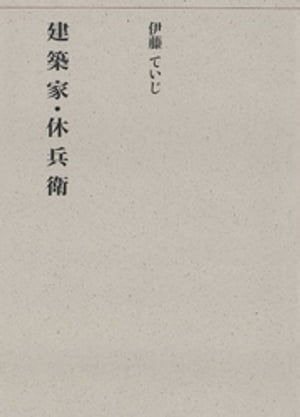 伊藤 ていじ
建築家・休兵衛